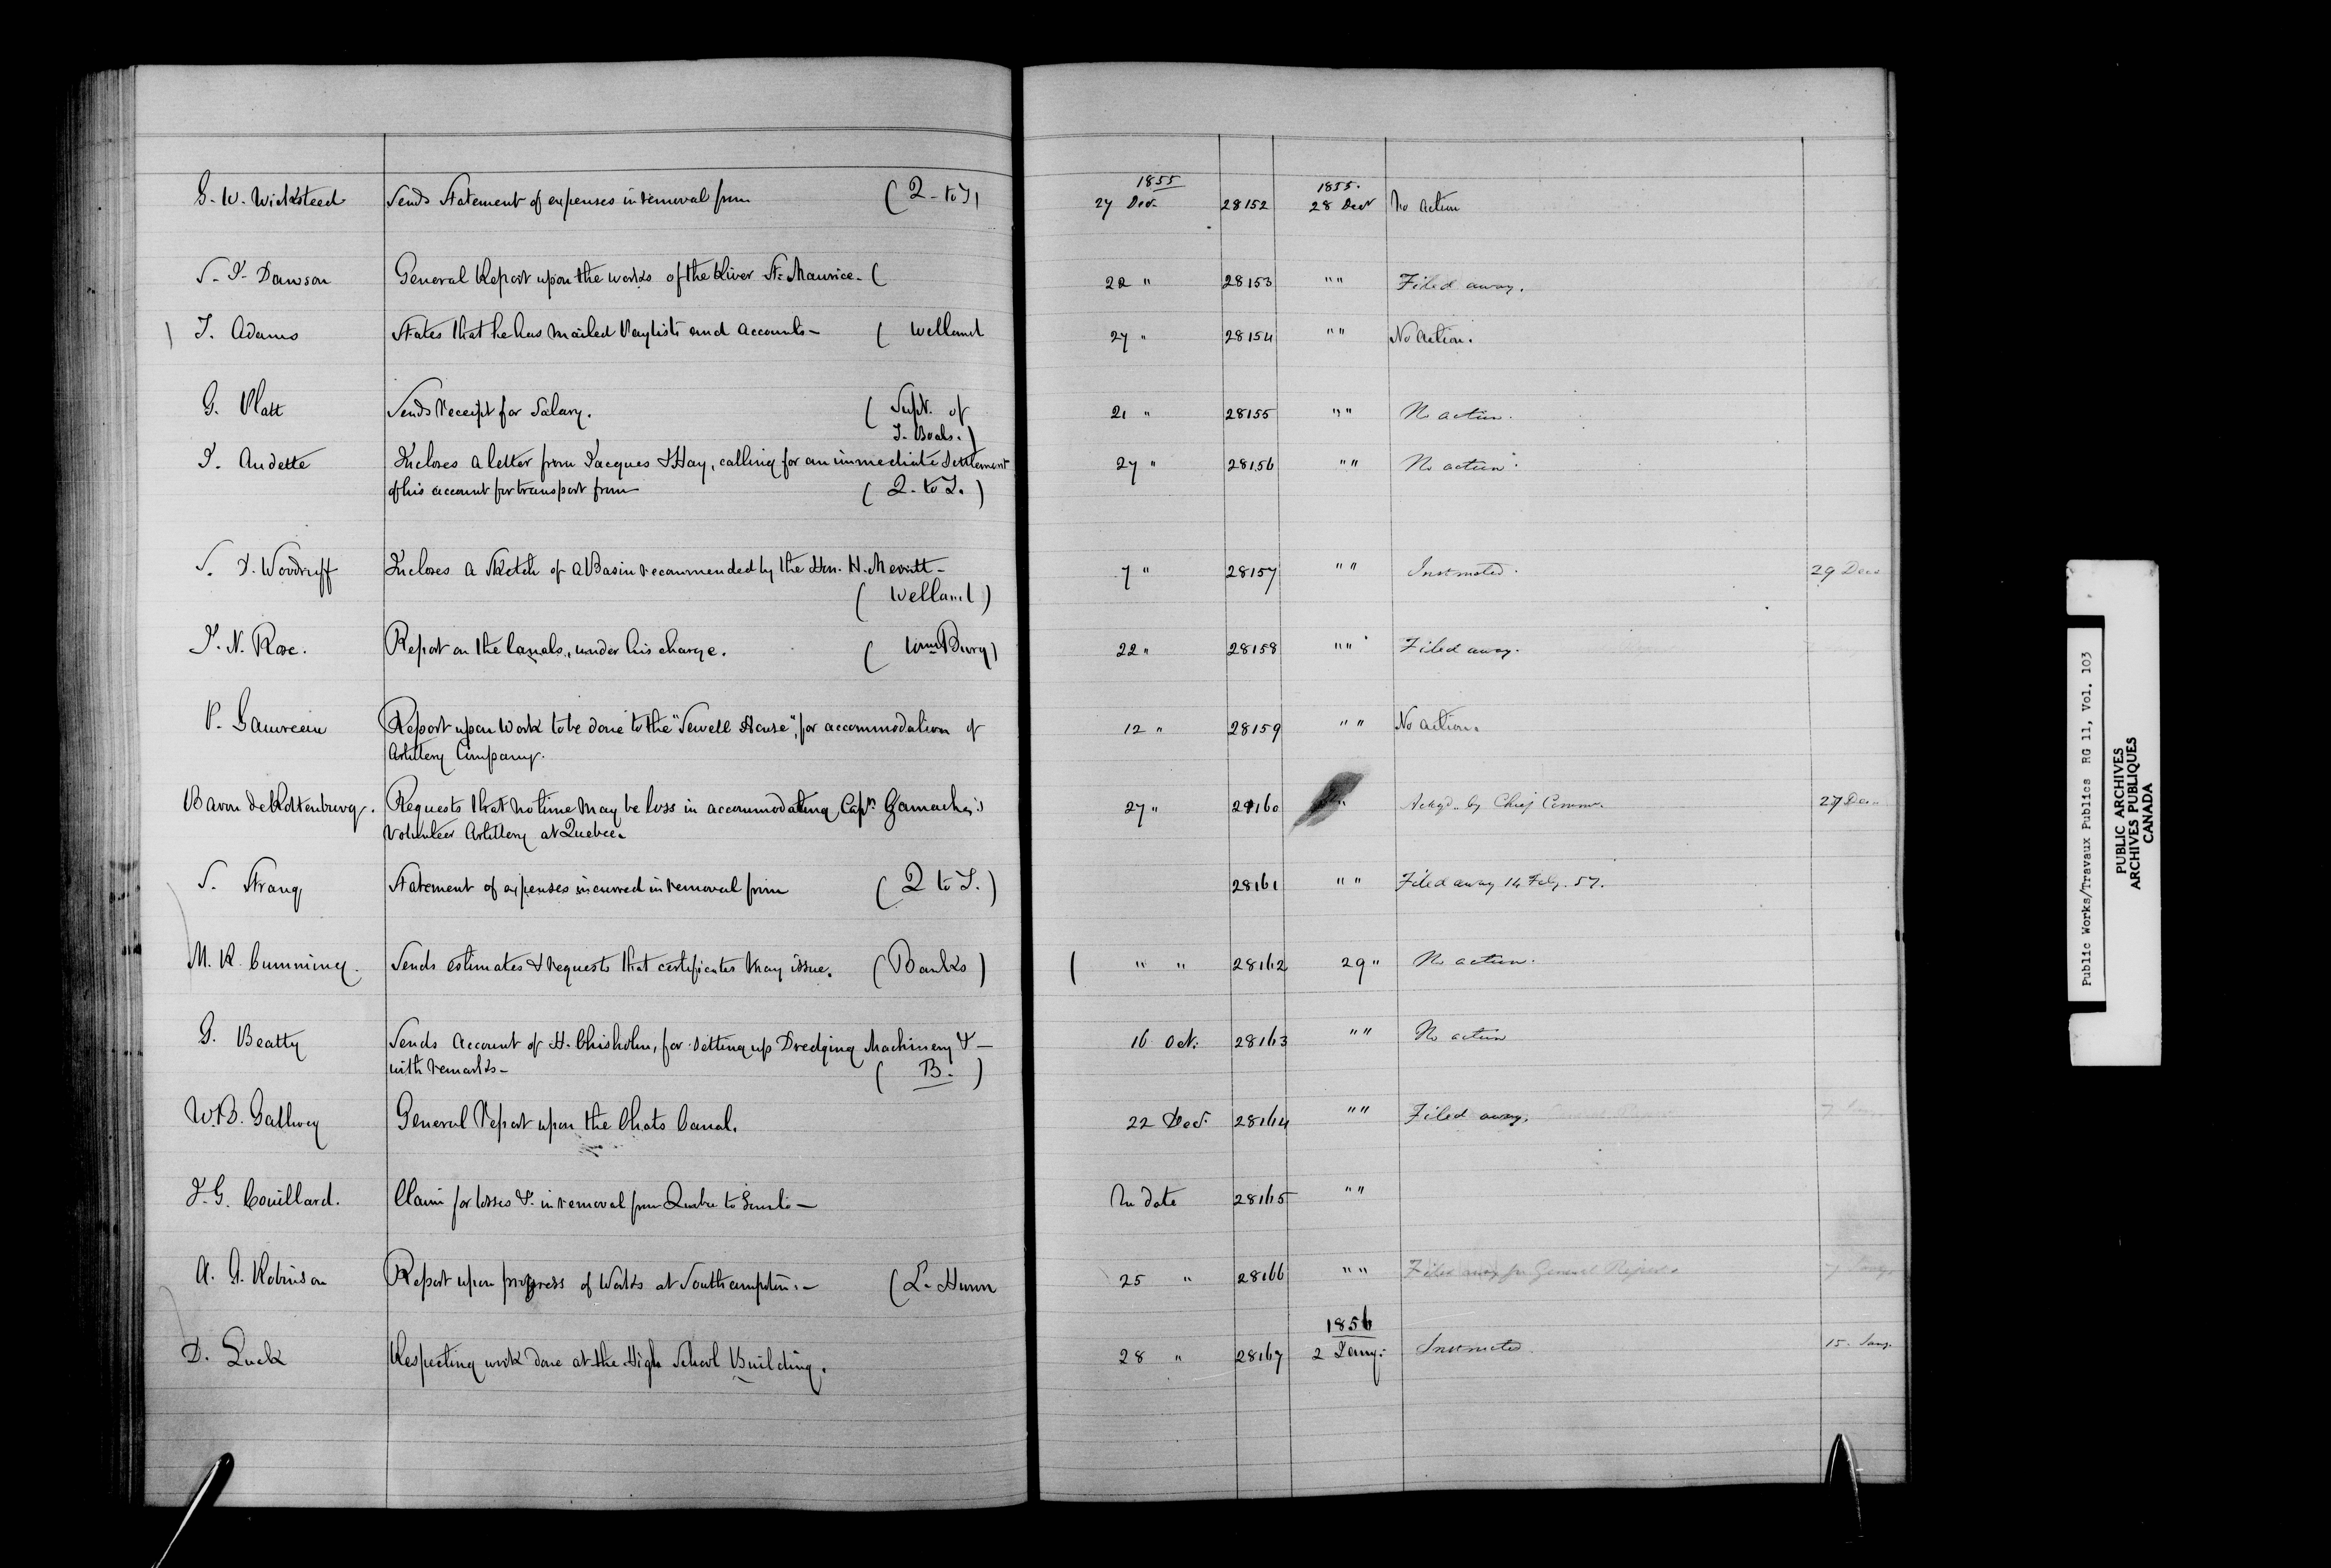 1855 1855.
G. W. Wicksteed Sends Statement of expenses in removal from ( Q - to T) 27 Decr 28152 28 Decr No action
S. J. Dawson General Report upon the works of the River St. Maurice. ( 22 " 28153 " " Filed away.
J. Adams States that he has mailed Paylists and Accounts - ( Welland 27 " 28154 " " No Action.
G. Platt Sends receipt for Salary. ( Supt. of 21 " 28155 " " No action.
T. Boats. )
J. Audette Incloses a letter from Jacques & Hay, calling for an immediate Settlement 27 " 28156 " " No action.
of his account for transport from ( Q. to T. )
S. D. Woodruff Incloses a Sketch of a Basin recommended by the Hon. H. Merritt - 7 " 28157 " " Instructed. 29 Decr
( Welland )
J. N. Rose. Report on the Canals, under his charge. ( WmsBurg ) 22 " 28158 " " Filed away.
P. Gauvreau Report upon Work to be done to the "Sewell House", for accommodation of 12 " 28159 " " No action.
Artillery Company.
Baron de Rottenburg. Requests that no time may be loss in accommodating Capt. Gamache's 27 " 28160 " Ackgd. by Chief Commr. 27 Dec.
Volunteer Artillery at Quebec.
S. Strang Statement of expenses incurred in removal from ( Q to T. ) 28161 " " Filed away 14 Feby. 57.
M. R. Cumming. Sends estimates & requests that certificates may issue. ( Banks ) ( " " 28162 29 " No action.
G. Beatty Sends Account of H. Chisholm, for setting up Dredging Machinery & - 16 Oct. 28163 " " No action
with remarks - ( B. )
W.B. Gallwey General Report upon the Chats Canal. 22 Decr. 28164 " " Filed away.
J. G. Couillard. Claim for losses &c. in removal from Quebec to Toronto - No date 28165 " "
A. G. Robinson Report upon progress of Works at Southampton. - ( L. Huron 25 " 28166 " " Filed away for General Report. 7 Jany.
1856
D. Luck Respecting work done at the High School Building. 28 " 28167 2 Jany. Instructed. 15. Jany.
Public Works/Travaux Publics RG 11, Vol. 103
PUBLIC ARCHIVES
ARCHIVES PUBLIQUES
CANADA